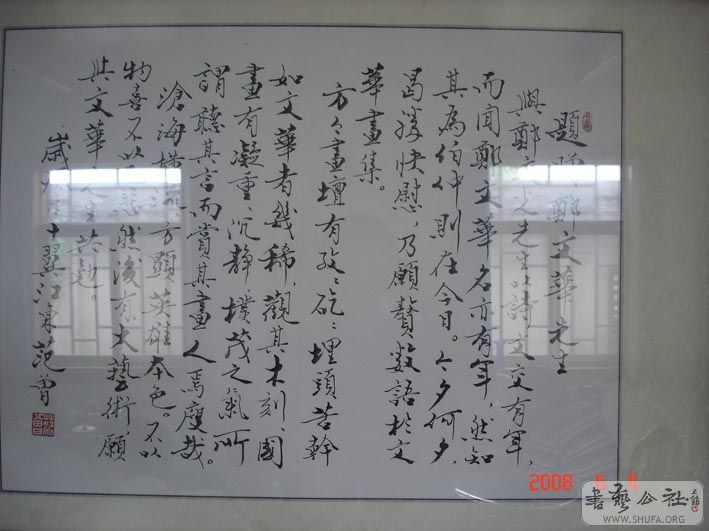 題贈鄭文華先生
與鄭文光先生以詩文交有年，
而聞鄭文華名亦有年，然知
其為伯仲則在今日。今夕何夕，
曷勝快慰，乃願贅數語於文
華畫集。
方今畫壇有孜〻矻〻埋頭苦幹
如文華者幾稀，觀其木刻、國
畫有凝重、沉静、樸茂之氣，所
謂聽其言而賞其畫，人焉廋哉。
滄海橫流，方顯英雄本色。不以
物喜，不以己悲，然後有大藝術，願
與文華先生共勉。
歲 十翼江東范曾
2008 6 4
書藝公社
WWW.SHUFA.ORG